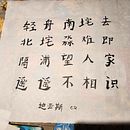 轻舟南垞去
北垞淼难即
隔浦望人家
遥遥不相识
迪亚斯